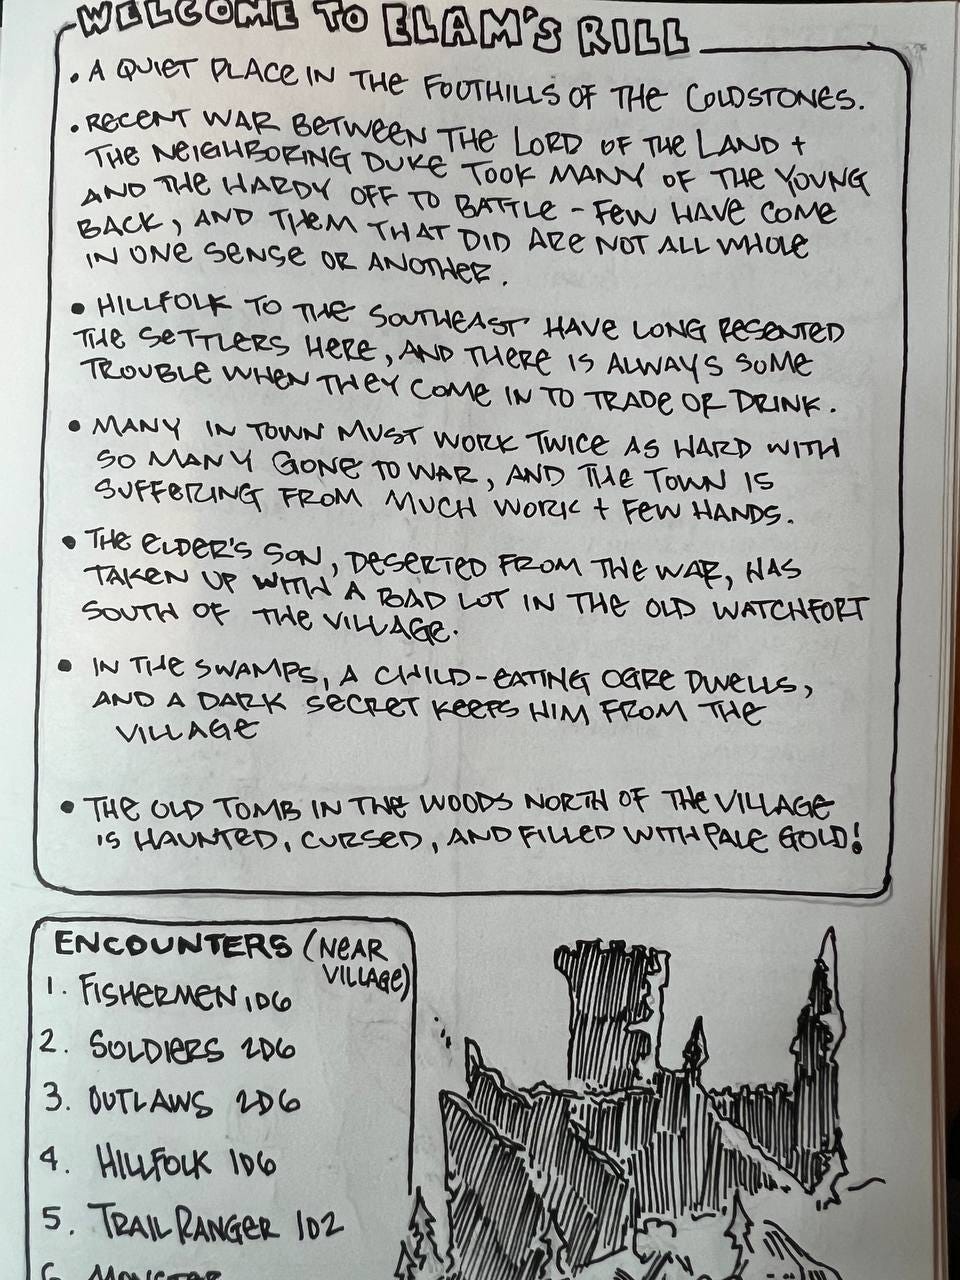 WELCOME TO ELAM'S RILL
• A QUIET PLACE IN THE FOOTHILLS OF THE COLDSTONES.
• RECENT WAR BETWEEN THE LORD OF THE LAND +
THE NEIGHBORING DUKE TOOK MANY OF THE YOUNG
AND THE HARDY OFF TO BATTLE - FEW HAVE COME
BACK, AND THEM THAT DID ARE NOT ALL WHOLE
IN ONE SENSE OR ANOTHER.
• HILLFOLK TO THE SOUTHEAST HAVE LONG RESENTED
THE SETTLERS HERE, AND THERE IS ALWAYS SOME
TROUBLE WHEN THEY COME IN TO TRADE OR DRINK.
• MANY IN TOWN MUST WORK TWICE AS HARD WITH
SO MANY GONE TO WAR, AND THE TOWN IS
SUFFERING FROM MUCH WORK + FEW HANDS.
• THE ELDER'S SON, DESERTED FROM THE WAR, HAS
TAKEN UP WITH A BAD LOT IN THE OLD WATCHFORT
SOUTH OF THE VILLAGE.
• IN THE SWAMPS, A CHILD-EATING OGRE DWELLS,
AND A DARK SECRET KEEPS HIM FROM THE
VILLAGE
• THE OLD TOMB IN THE WOODS NORTH OF THE VILLAGE
IS HAUNTED, CURSED, AND FILLED WITH PALE GOLD!
ENCOUNTERS (NEAR
VILLAGE)
1. FISHERMEN 1D6
2. SOLDIERS 2D6
3. OUTLAWS 2D6
4. HILLFOLK 1D6
5. TRAIL RANGER 1D2